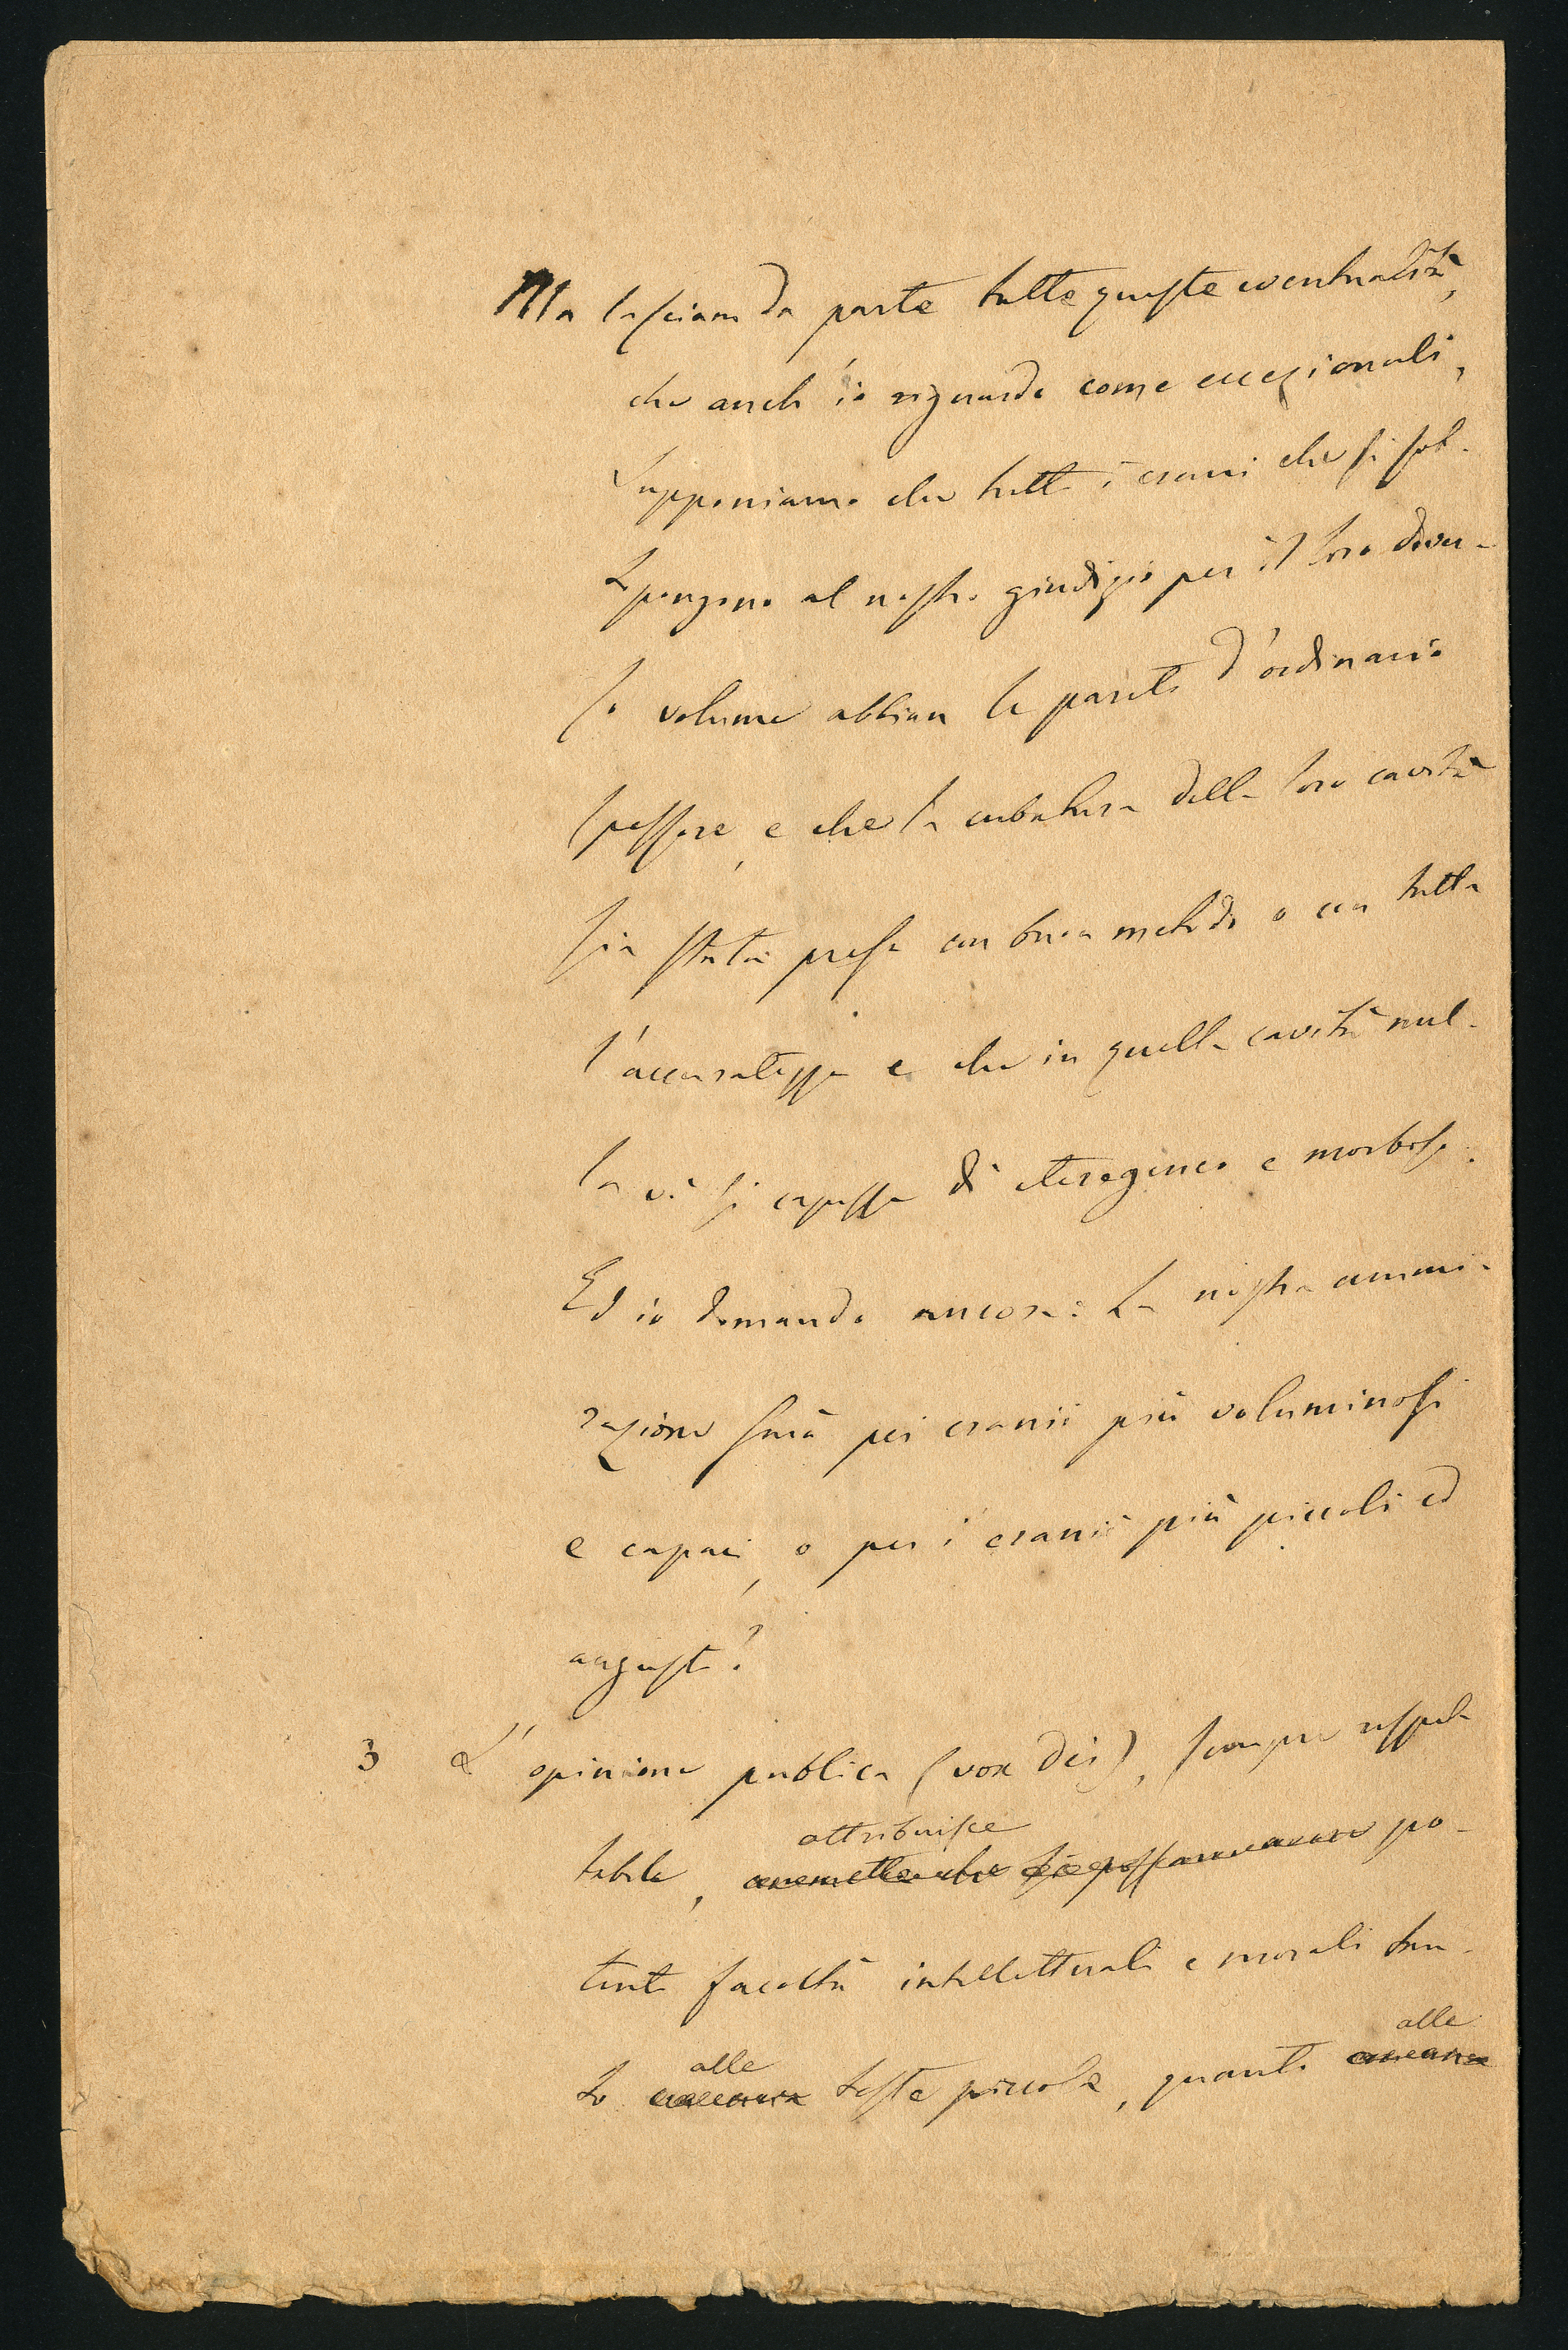 Ma lasciam da parte tutte queste eventualità,
che anch'io riguardo come eccezionali,
Supponiamo che tutti i cranii che si sot-
topongono al nostro giudizio per il loro diver-
so volume abbian le pareti d'ordinario
spessore, e che la cubatura della loro cavità
sia stata presa con buon metodo e con tutta
l'accuratezza e che in quella cavità nul-
la vi si capisse di eterogeneo e morboso.
Ed io domando ancora: La nostra ammi-
razione sarà pei cranii più voluminosi
e capaci, o per i cranii più piccoli ed
angusti?
3 L'opinione publica (vox Dei), sempre rispet-
attribuisce
tabile, po-
tenti facoltà intellettuali e morali tan-
alle alle
to teste piccole, quanto